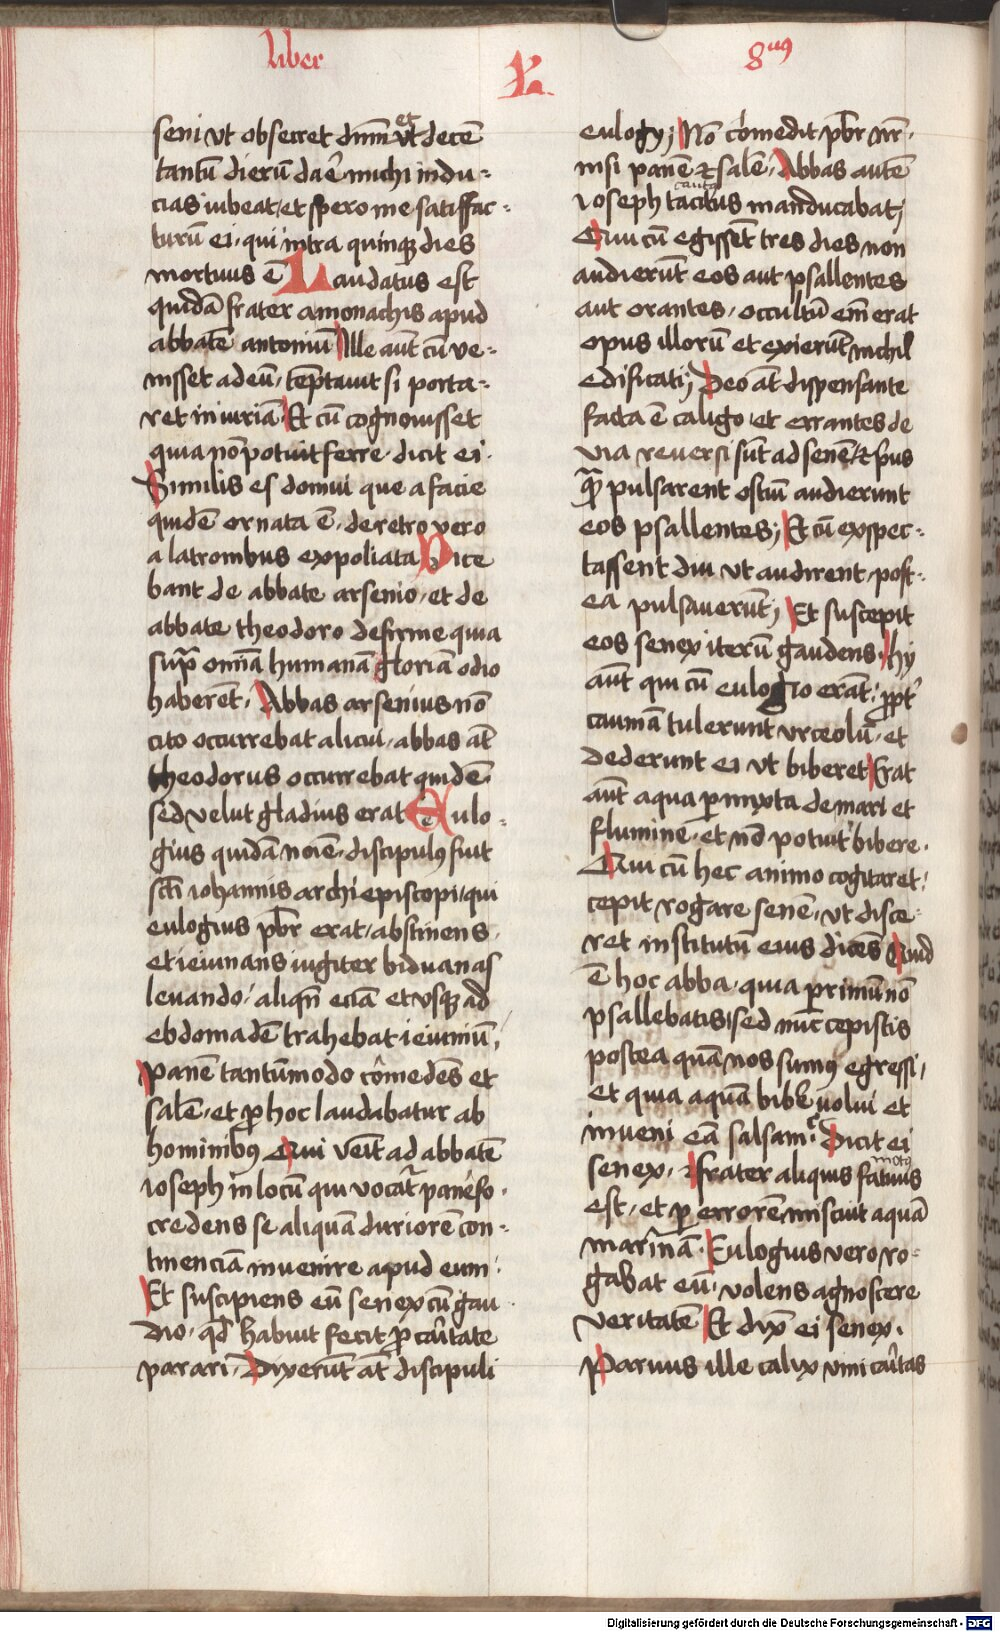 liber
K
8us
seni vt obsecret dnm̄ et vt decē
tantū dierū daē michi indu-
cias iubeat, et spero me satiffac-
turū ei, qui intra quinq̄ dies
mortuus ē Laudatus est
quidā frater a monachis apud
abbatē antoniū Ille aut̄ cū ve-
nisset ad eū, tēptauit si porta-
ret iniuriā. Et cū cognouisset
quia nō potuit ferre. dicit ei.
Similis es domui que a facie
quidē ornata ē, de retro vero
a latronibus expoliata Dice
bant de abbate arsenio, et de
abbate theodoro de ferme quia
sup̄ omnā humanā gloriā odio
haberēt. Abbas arsenius nō
cito occurrebat alicui, abbas at̄
theodorus occurrebat quidē.
sed velut gladius erat Eulo-
gius quidā noīe, discipulꝰ fuit
scī iohannis archiepiscopi, qui
eulogius pb̄r erat, abstinens.
et ieiunans iugiter biduanas
leuando, aliqn̄ eciā et vsq̄ ad
ebdomadē trahebat ieiuniū,
panē tantūmodo cōmedēs et
salē, et p hoc laudabatur ab
hominibꝰ Qui venit ad abbatē
ioseph in locū qui vocat̄ panefo.
credens se aliquā duriorē con-
tinenciā inuenire apud eum.
Et suscipiens eū senex cū gau
dio, qd̄ habuit fecit p caritate
parari, Dixerūt at̄ discipuli
eulogij; Nō cōmedit pb̄r nr̄.
nisi panē et salē. Abbas autē
ioseph tacitus manducabat;
Qui cū egissēt tres dies non
audierūt eos aut psallentes
aut orantes, occultū em̄ erat
opus illorū et exierūt nichil
edificati; Deo at̄ dispensante
facta ē caligo, et errantes de
via reuersi sūt ad senē, et p̄us
quā pulsarent ostiū audierunt
eos psallentes; Et cū exspec-
tassent diu vt audirent, post-
ea pulsauerūt; Et suscepit
eos senex iterū gaudens. hij
aut̄ qui cū eulogio erāt, ppt̄
caumā tulerunt vrceolū, et
dederunt ei vt biberet Erat
aut̄ aqua pmixta de mari et
flumine, et nō potuit bibere.
Qui cū hec animo cogitaret,
cepit rogare senē, vt disce-
ret institutū eius dicēs Quid
ē hoc abba, quia primū nō
psallebatis, sed nūc cepistis
postea quā nos sumꝰ egressi,
et quia aquā bibē uolui et
inueni eā salsam. Dicit ei
senex. frater aliquis fatuus
est, et p errorē miscuit aquā
marinā. Eulogius vero ro-
gabat eū, volens agnoscere
veritatē Et dix̄ ei senex.
Paruus ille calix vini caritas
Digitalisierung gefördert durch die Deutsche Forschungsgemeinschaft - DFG